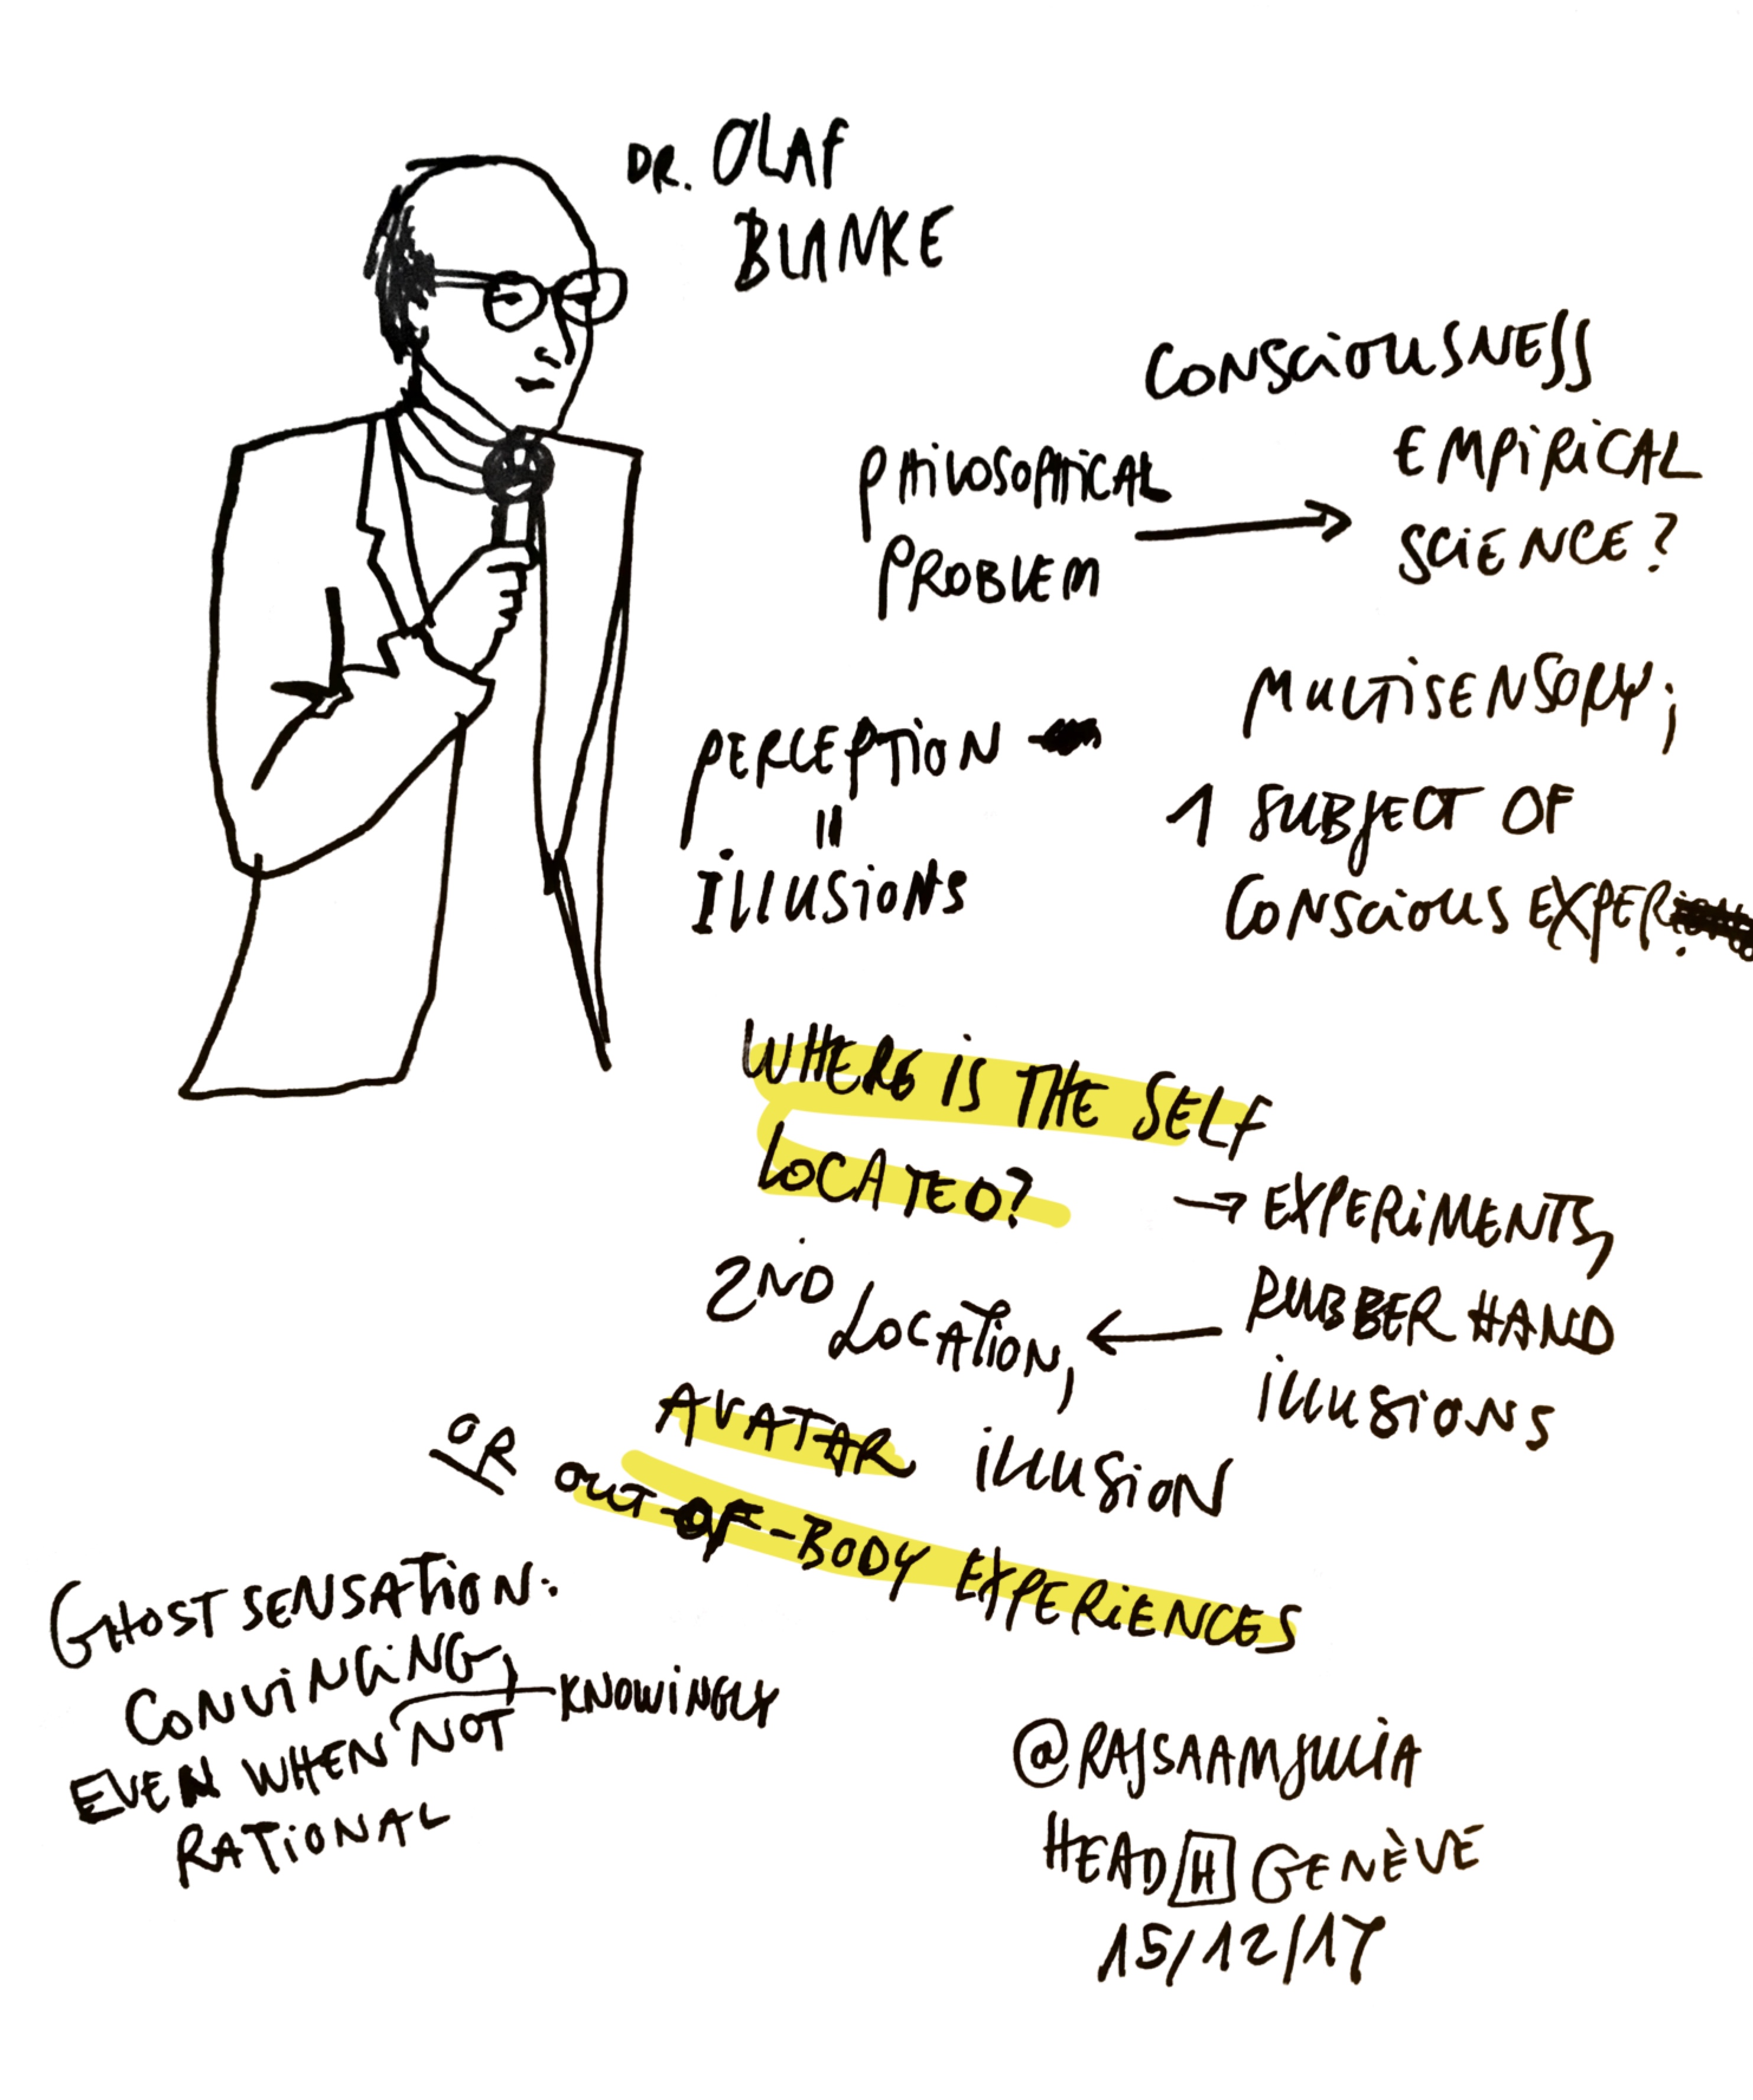 DR. OLAF
BLANKE
CONSCIOUSNESS
PHILOSOPHICAL
PROBLEM
EMPIRICAL
SCIENCE?
PERCEPTION
=
ILLUSIONS
MULTISENSORY;
1 SUBJECT OF
CONSCIOUS EXPER
WHERE IS THE SELF
LOCATED?
→ EXPERIMENTS,
RUBBER HAND
ILLUSIONS
2ND LOCATION,
AVATAR ILLUSION
OR OUT-OF-BODY EXPERIENCES
GHOST SENSATION:
CONVINCING,
EVEN WHEN NOT KNOWINGLY
RATIONAL
@RAJSAAMJULIA
HEAD H GENÈVE
15/12/17